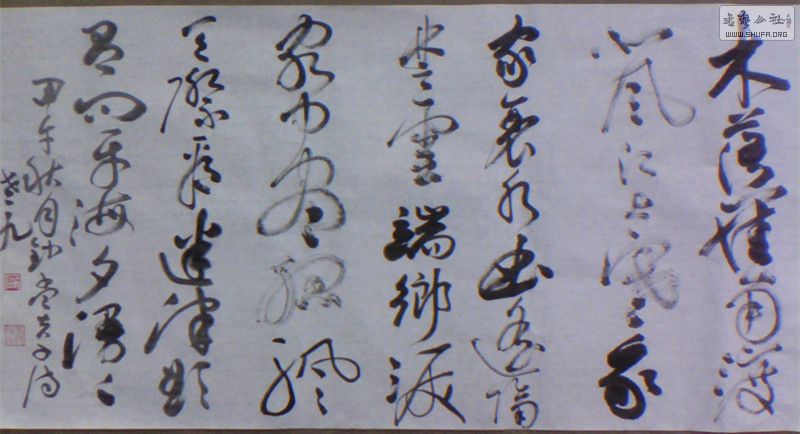 木落雁南渡
北風江上寒我
家襄水曲遙隔
楚雲端鄉淚
客中盡孤帆
天際看迷津欲
有問平海夕漫〻
甲午秋月孟夫子詩
書藝公社
WWW.SHUFA.ORG